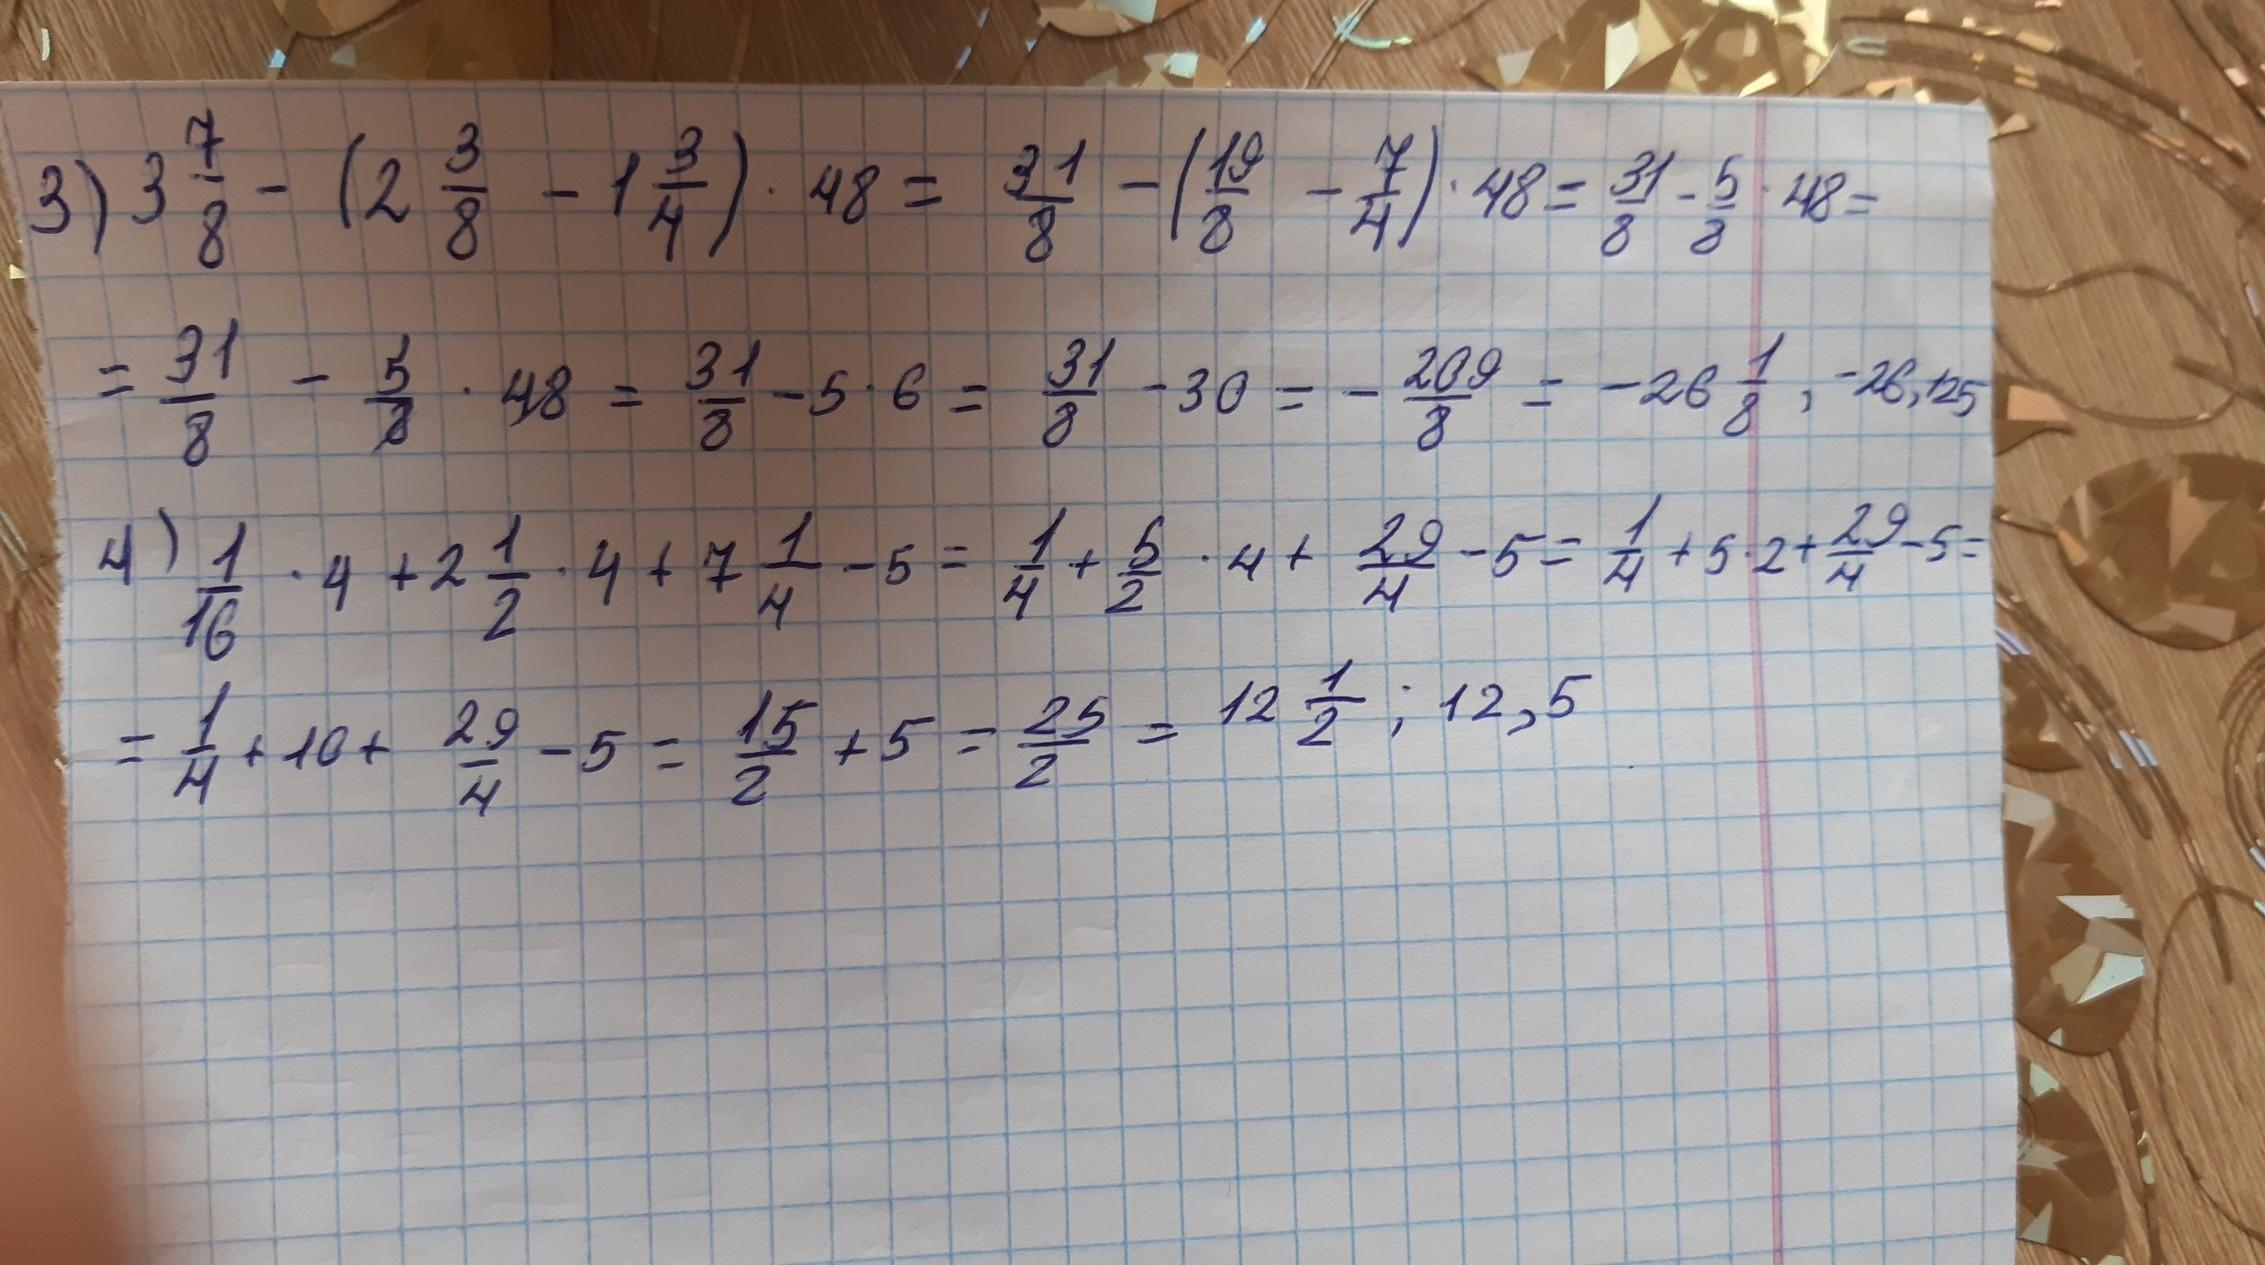 3) 3 7/8 - (2 3/8 - 1 3/4) · 48 = 31/8 - (19/8 - 7/4) · 48 = 31/8 - 5/8 · 48 =
= 31/8 - 5/8 · 48 = 31/8 - 5 · 6 = 31/8 - 30 = - 209/8 = - 26 1/8 , -26,125
4) 1/16 · 4 + 2 1/2 · 4 + 7 1/4 - 5 = 1/4 + 5/2 · 4 + 29/4 - 5 = 1/4 + 5 · 2 + 29/4 - 5 =
= 1/4 + 10 + 29/4 - 5 = 15/2 + 5 = 25/2 = 12 1/2 ; 12,5